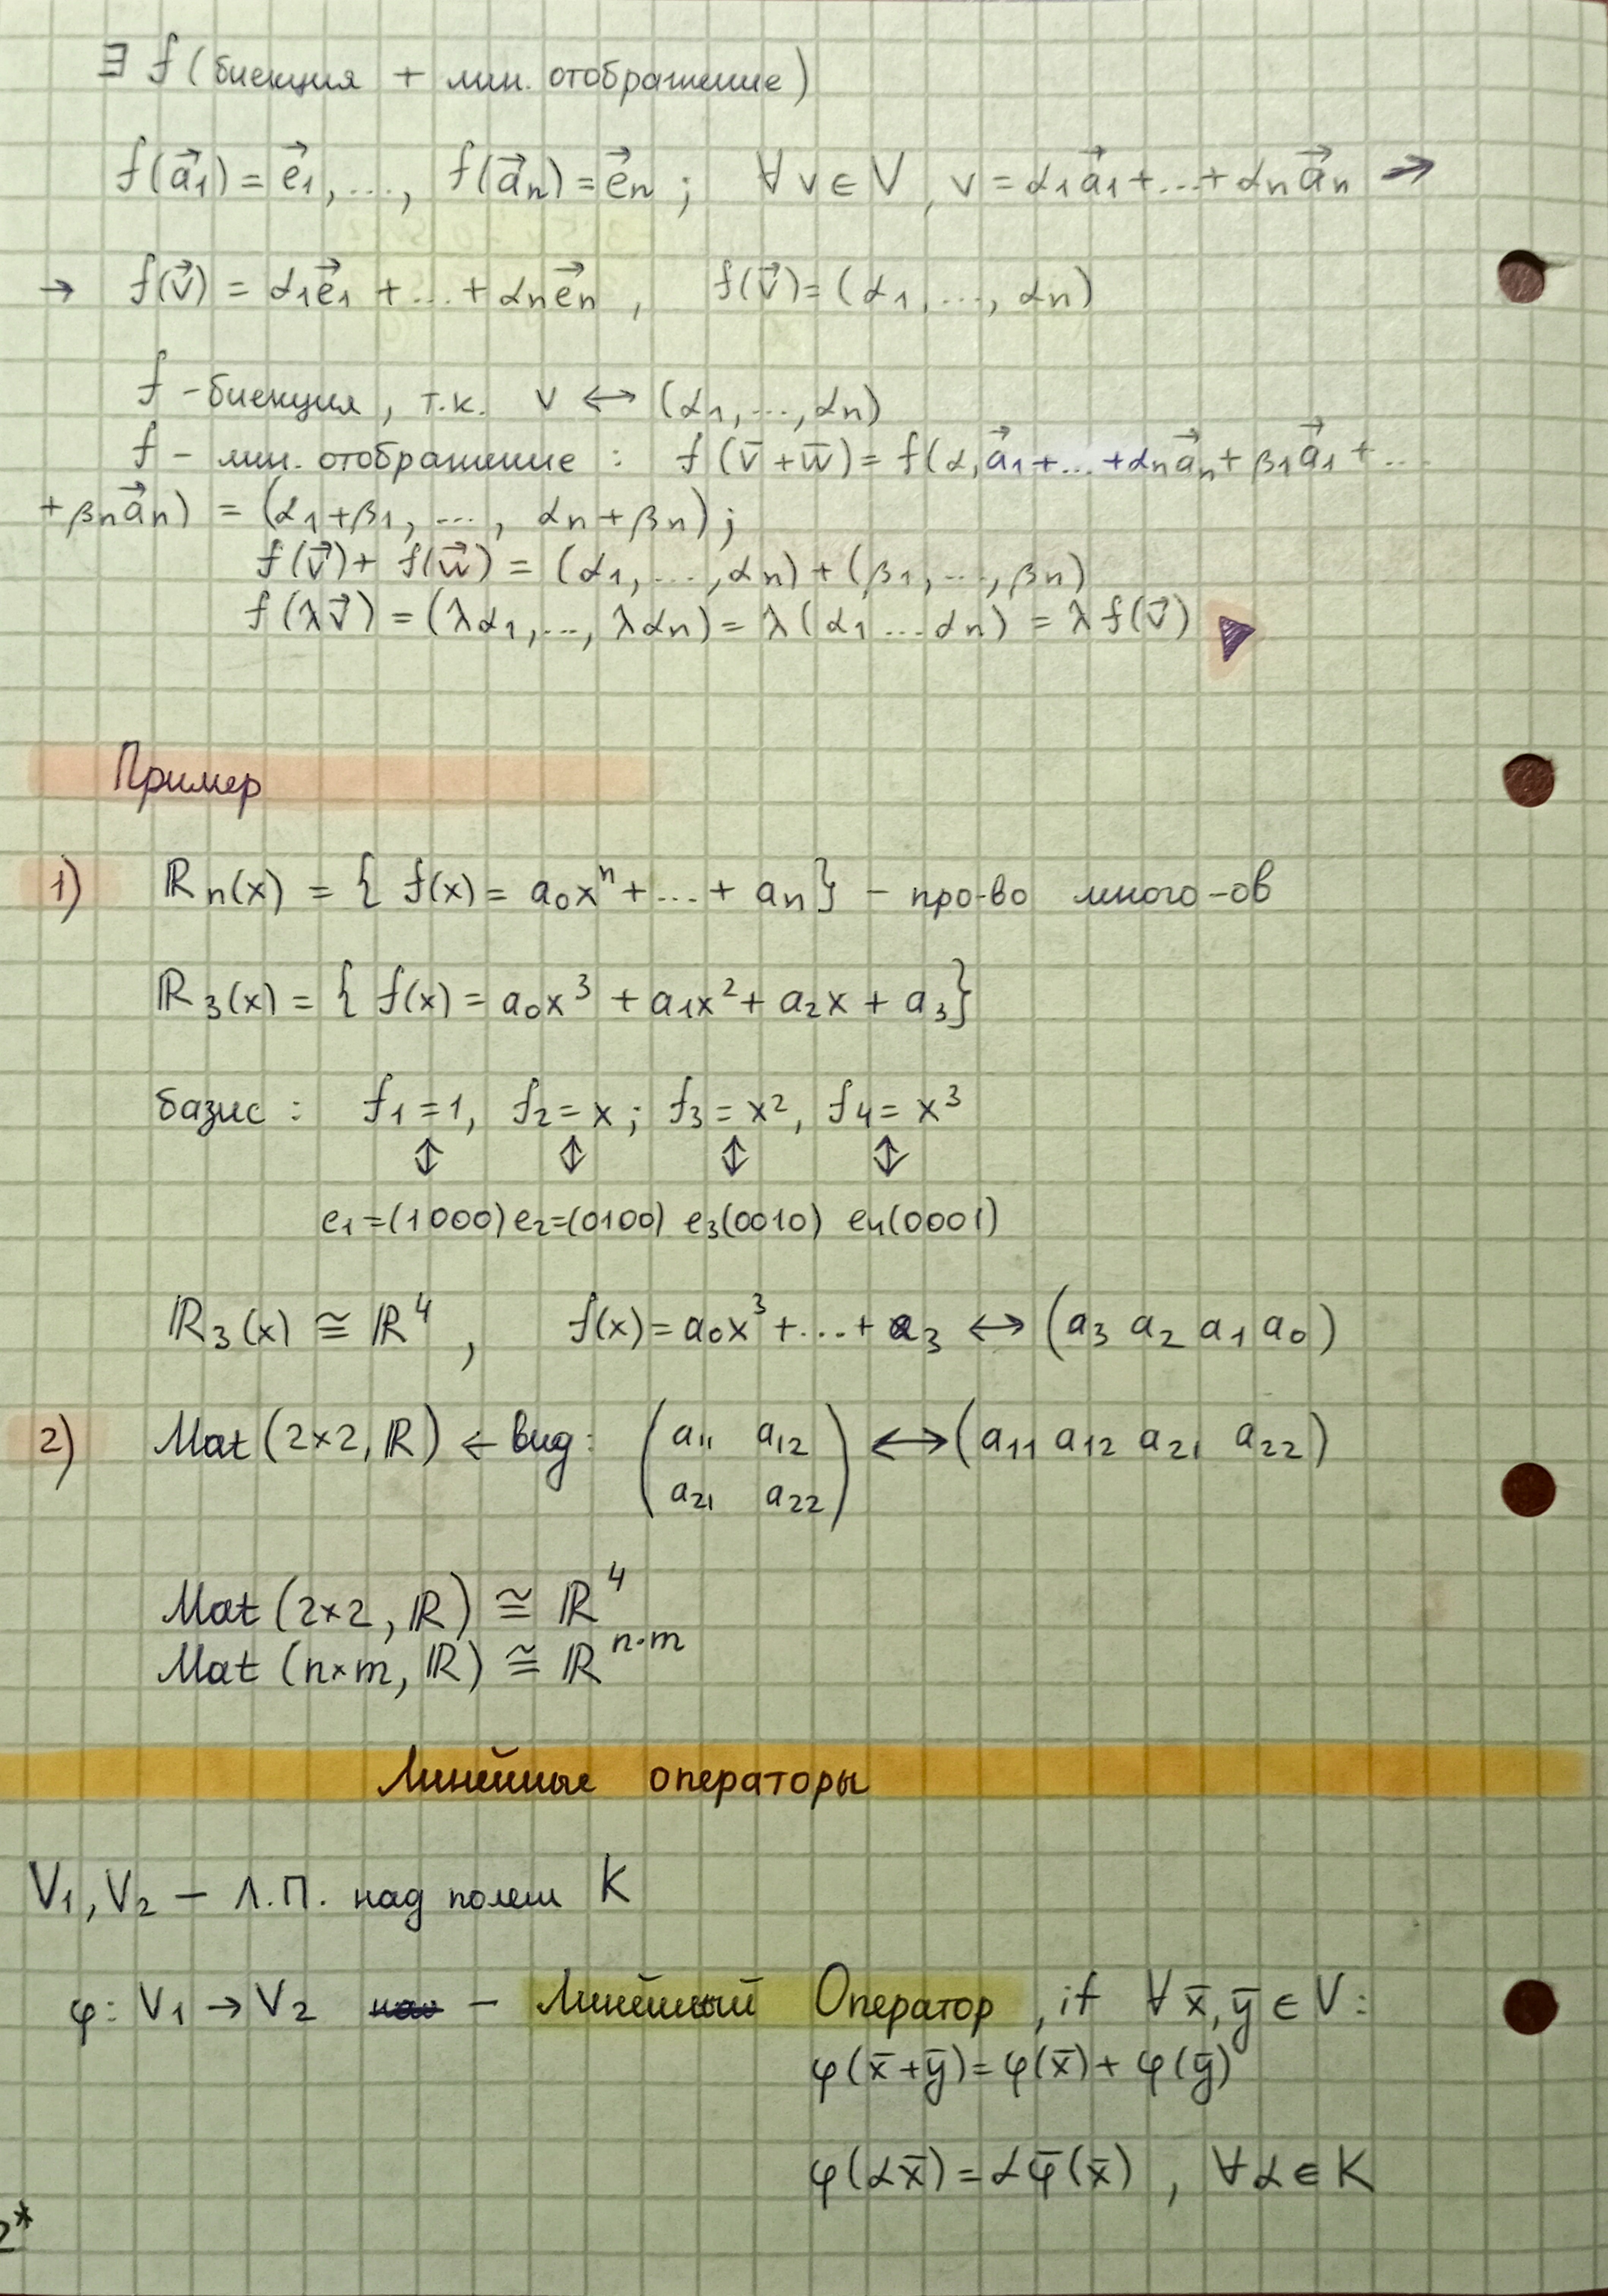 ∃ f (биекция + лин. отображение)
f(a⃗₁) = e⃗₁, ..., f(a⃗ₙ) = e⃗ₙ ; ∀ v ∈ V, v = α₁a⃗₁ + ... + αₙa⃗ₙ →
→ f(v⃗) = α₁e⃗₁ + ... + αₙe⃗ₙ , f(v⃗) = (α₁, ..., αₙ)
f – биекция, т.к. v ↔ (α₁, ..., αₙ)
f – лин. отображение : f(v̄ + w̄) = f(α₁a⃗₁ + ... + αₙa⃗ₙ + β₁a⃗₁ + ...
+ βₙa⃗ₙ) = (α₁+β₁, ..., αₙ+βₙ) ;
f(v⃗) + f(w⃗) = (α₁, ..., αₙ) + (β₁, ..., βₙ)
f(λv⃗) = (λα₁, ..., λαₙ) = λ(α₁ ... αₙ) = λf(v⃗)
Пример
1) ℝₙ(x) = { f(x) = a₀xⁿ + ... + aₙ} – про-во много-ов
ℝ₃(x) = { f(x) = a₀x³ + a₁x² + a₂x + a₃}
базис : f₁ = 1, f₂ = x ; f₃ = x², f₄ = x³
↕ ↕ ↕ ↕
e₁=(1000) e₂=(0100) e₃(0010) e₄(0001)
ℝ₃(x) ≅ ℝ⁴ , f(x) = a₀x³ + ... + a₃ ↔ (a₃ a₂ a₁ a₀)
2) Mat (2×2, ℝ) ← вид: (a₁₁ a₁₂ ↔ (a₁₁ a₁₂ a₂₁ a₂₂)
a₂₁ a₂₂)
Mat (2×2, ℝ) ≅ ℝ⁴
Mat (n×m, ℝ) ≅ ℝⁿ·ᵐ
Линейные операторы
V₁, V₂ – Л.П. над полем K
φ: V₁ → V₂ – Линейный Оператор, if ∀ x̄, ȳ ∈ V:
φ(x̄+ȳ) = φ(x̄) + φ(ȳ)
φ(αx̄) = αφ̄(x̄) , ∀ α ∈ K
2*